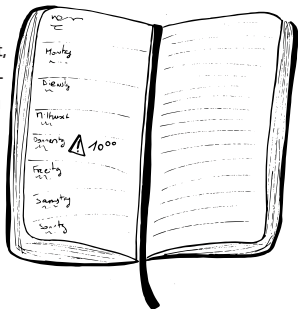 Montag
Dienstag
Mittwoch
Donnerstag 10⁰⁰
Freitag
Samstag
Sonntag